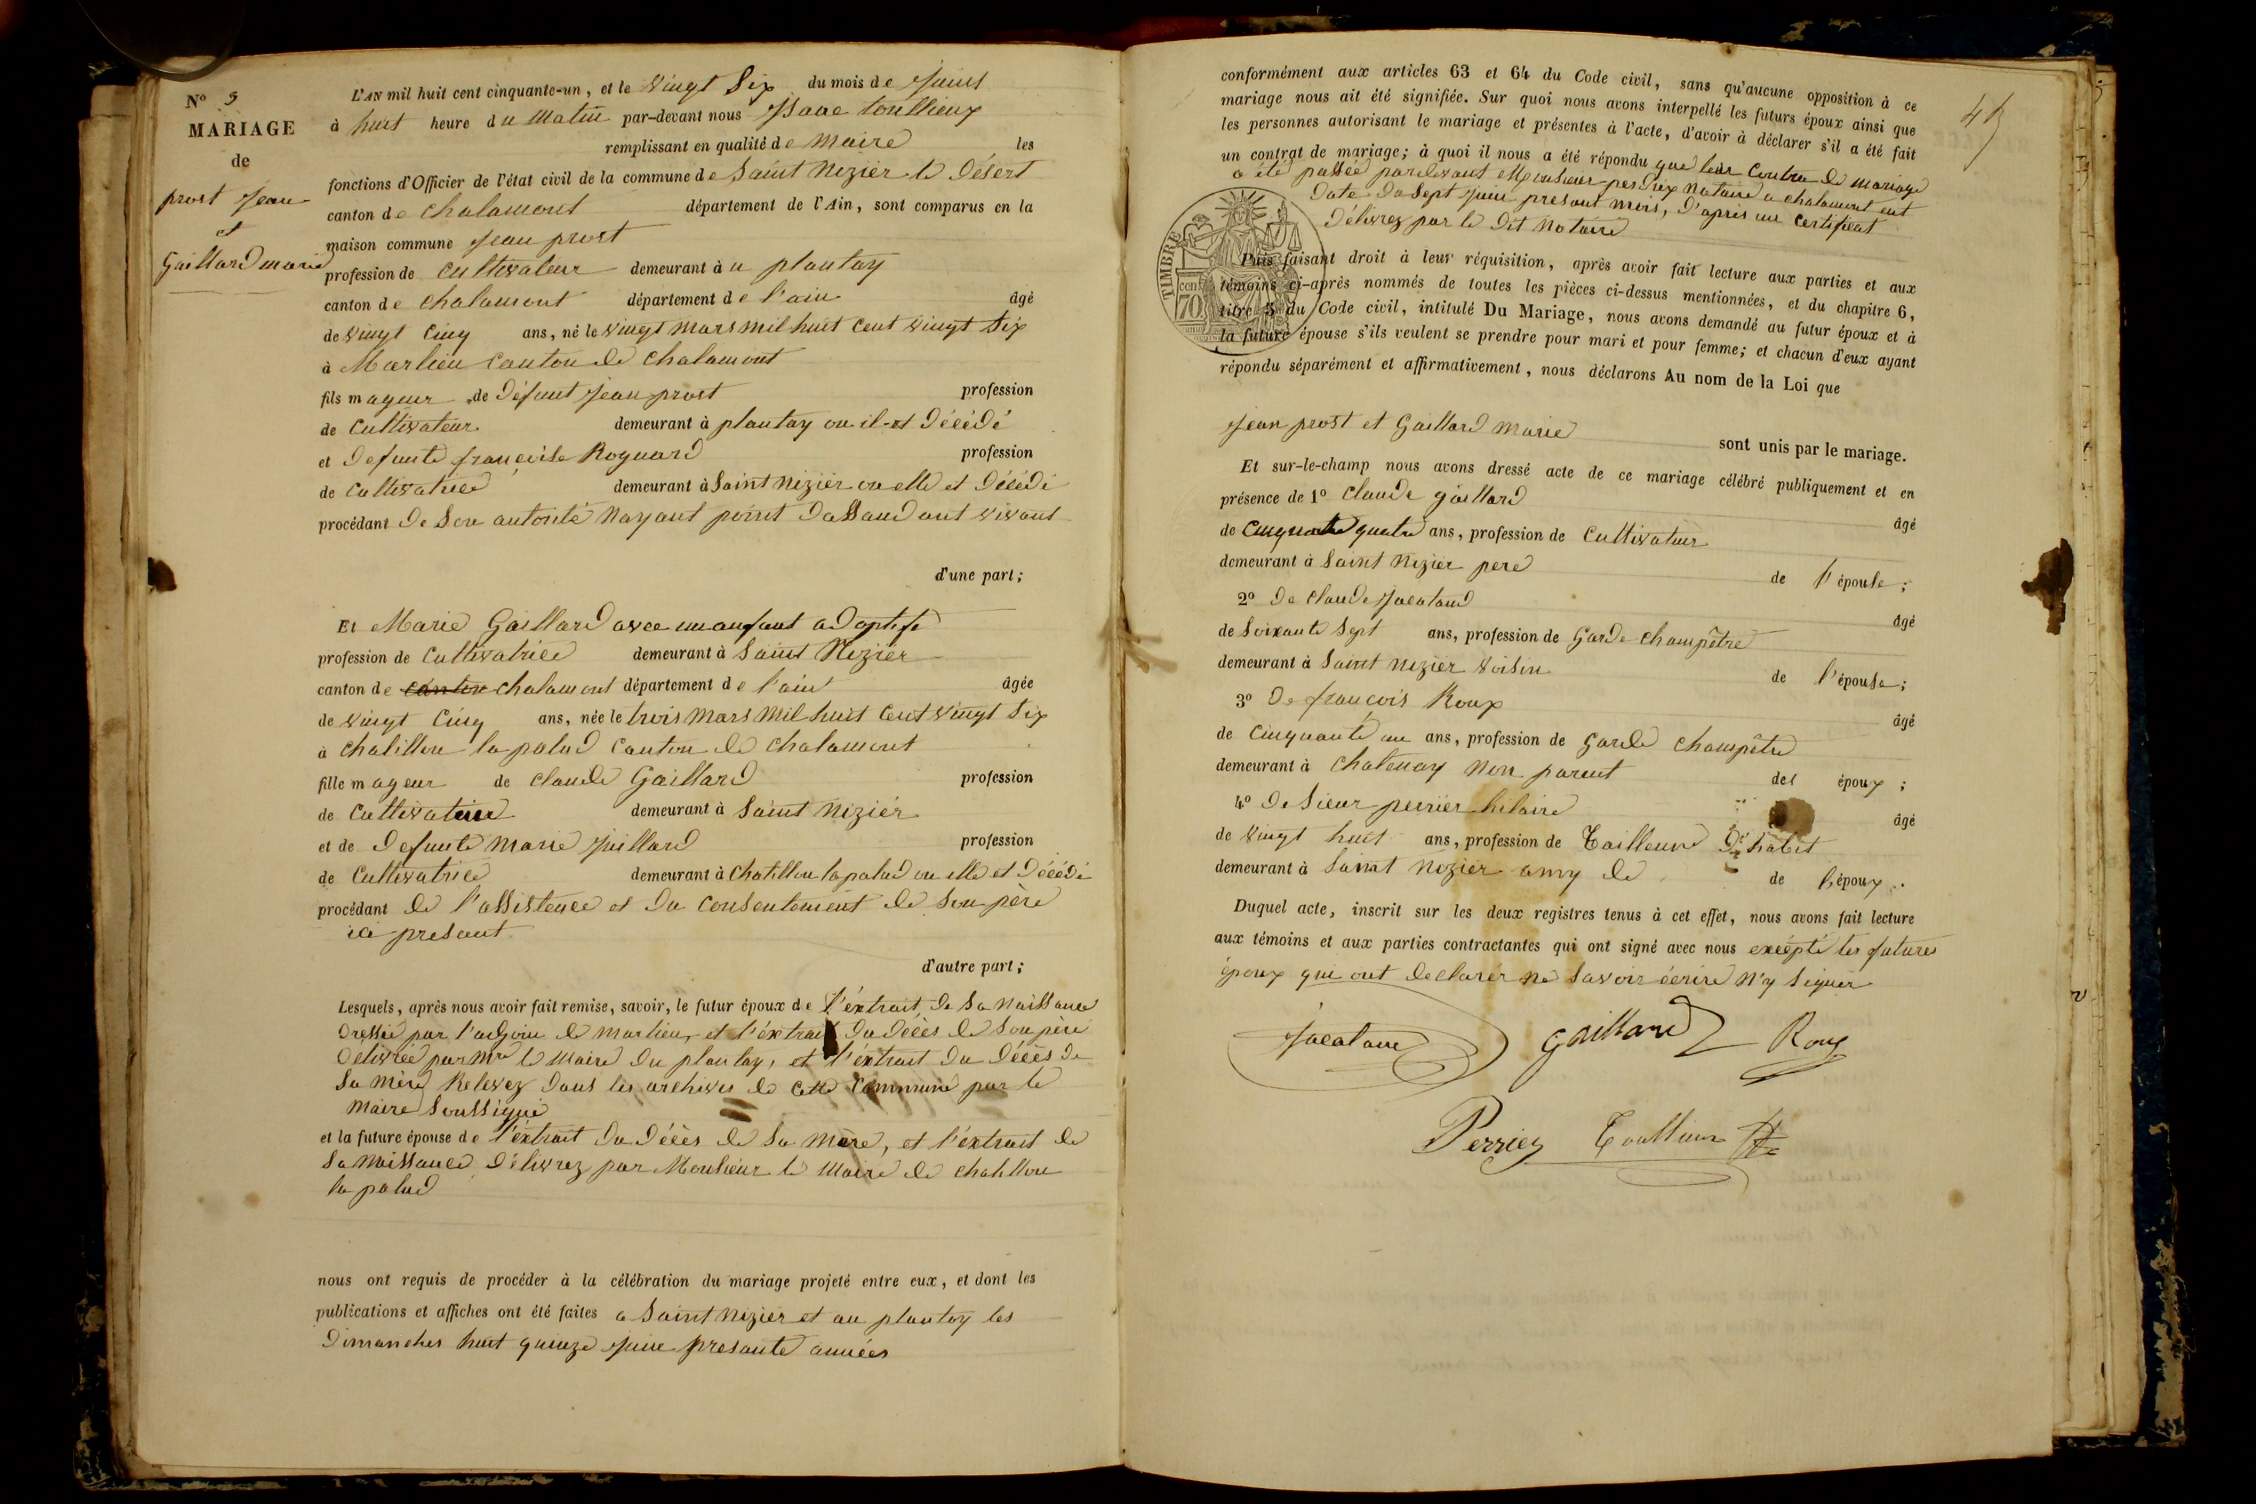 N° 9
MARIAGE
de
prost Jean
et
Gaillard marie
L'AN mil huit cent cinquante-un, et le vingt Six du mois de Juint
à huit heure du Matin par-devant nous Isaac toullieux
remplissant en qualité de Maire les
fonctions d'Officier de l'état civil de la commune de Saint Nizier le Désert
canton de chalamont département de l'Ain, sont comparus en la
maison commune Jean prost
profession de cultivateur demeurant à u plantay
canton de chalamont département de l'ain âgé
de vingt Cinq ans, né le vingt Mars mil huit Cent vingt Six
à Marlieu canton de chalamont
fils mageur de Défunt Jean prost profession
de Cultivateur demeurant à plantay ou il et Décédé
et Defunte françoise Roguard profession
de Cultivatrice demeurant à Saint Nizier ou elle et Décédé
procédant De Son autorité Nayant point Dassandant vivant
d'une part;
Et Marie Gaillard avec un anfant adoptife
profession de Cultivatrice demeurant à Saint Nizier
canton de canton chalamont département de l'ain âgée
de vingt Cinq ans, née le trois Mars Mil huit Cent vingt Six
à chatillon la palud Canton de chalamont
fille mageur de claude Gaillard profession
de Cultivateur demeurant à Saint Nizier
et de Defunte Marie Juillard profession
de Cultivatrice demeurant à chatillon lapalud ou elle et Décédé
procédant de l'assistence et du Consentement de Son père
ici presant
d'autre part;
Lesquels, après nous avoir fait remise, savoir, le futur époux de l'éxtrait De Sa Naissance
Dressée par l'adjoin de Marlieu, et l'éxtrait Du Décès de Son père
Delivrée par Mr le Maire Du plantay, et l'éxtrait Du Décès De
Sa mère Relevez Dans les archives de Cette Commune par le
Maire Soussigné
et la future épouse de l'éxtrait Du Décès de Sa Mère, et l'éxtrait de
Sa Naissance Délivrez par Monsieur le Maire de chatillon
la palud
nous ont requis de procéder à la célébration du mariage projeté entre eux, et dont les
publications et affiches ont été faites a Saint Nizier et au plantay les
Dimanches huit quinze Juin presante années
conformément aux articles 63 et 64 du Code civil, sans qu'aucune opposition à ce
mariage nous ait été signifiée. Sur quoi nous avons interpellé les futurs époux ainsi que
les personnes autorisant le mariage et présentes à l'acte, d'avoir à déclarer s'il a été fait
un contrat de mariage; à quoi il nous a été répondu que leur Contra de mariage
a été passée pardevant Monsieur perdrix Notaire a chalamont ent
Date Du Sept Juin presant Mois, D'après un Certificat
Délivrez par le Dit Notaire
TIMBRE
cent. 70
Puis faisant droit à leur réquisition, après avoir fait lecture aux parties et aux
témoins ci-après nommés de toutes les pièces ci-dessus mentionnées, et du chapitre 6,
titre 5 du Code civil, intitulé Du Mariage, nous avons demandé au futur époux et à
la future épouse s'ils veulent se prendre pour mari et pour femme; et chacun d'eux ayant
répondu séparément et affirmativement, nous déclarons Au nom de la Loi que
Jean prost et Gaillard Marie
sont unis par le mariage.
Et sur-le-champ nous avons dressé acte de ce mariage célébré publiquement et en
présence de 1° Claude gaillard
âgé
de Cinquante quatre ans, profession de Cultivateur
demeurant à Saint Nizier pere de l'épouse;
2° De Claude Jacatand
âgé
de Soixante Sept ans, profession de Garde Champêtre
demeurant à Saint Nizier voisin de l'épouse;
3° De françois Roux
âgé
de Cinquante un ans, profession de Garde Champêtre
demeurant à Chatenay Non parent del époux;
4° De Sieur perrier hilaire
âgé
de vingt huit ans, profession de Tailleur D'habit
demeurant à Sanit Nizier amy de de l'époux.
Duquel acte, inscrit sur les deux registres tenus à cet effet, nous avons fait lecture
aux témoins et aux parties contractantes qui ont signé avec nous excépté les future
époux qui ont declarer ne Savoir écrire N'y Signer
Jacatane Gaillard Roux
Perrier Toullieux